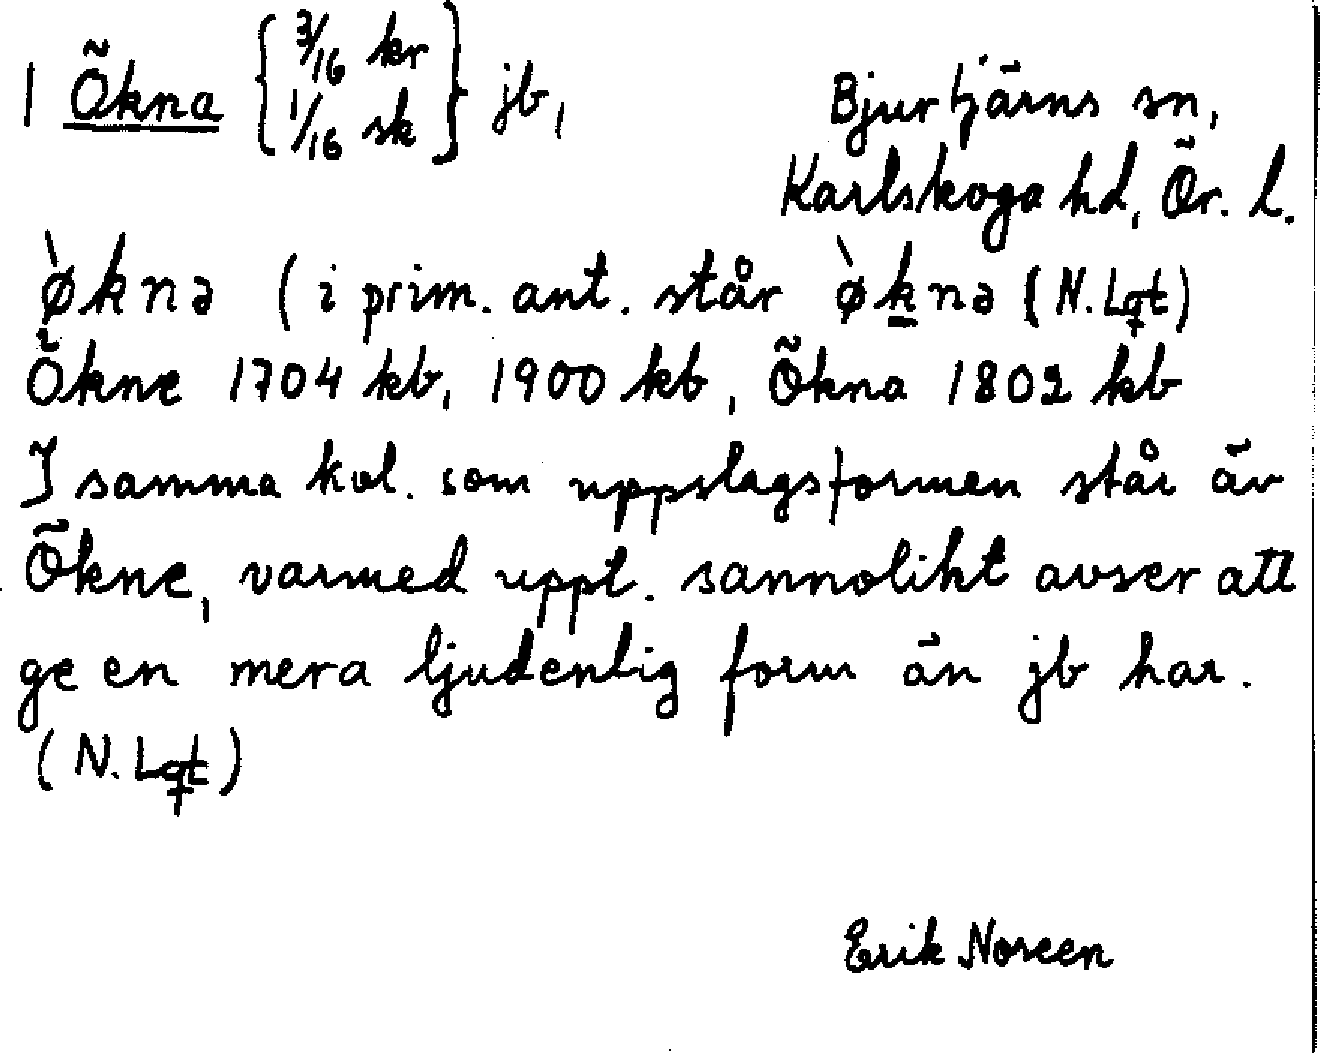 1 Ökna { 3/16 kr 1/16 sk } jb,
Bjurtjärns sn,
Karlskoga hd, Ör. l.
ø̀knə (i prim. ant. står ø̀k̲nə (N. Lqt)
Ökne 1704 kb, 1900 kb, Ökna 1802 kb
I samma kol. som uppslagsformen står äv
Ökne, varmed uppt. sannolikt avser att
ge en mera ljudenlig form än jb har.
(N. Lqt)
Erik Noreen